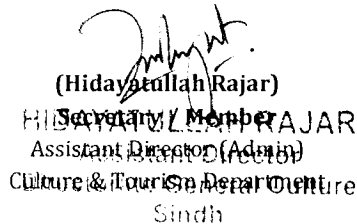 (Hidayatullah Rajar)
Secretary / Member
HIDAYATULLAH RAJAR
Assistant Director (Admin)
Assistant Director
Culture & Tourism Department
General Culture
Sindh